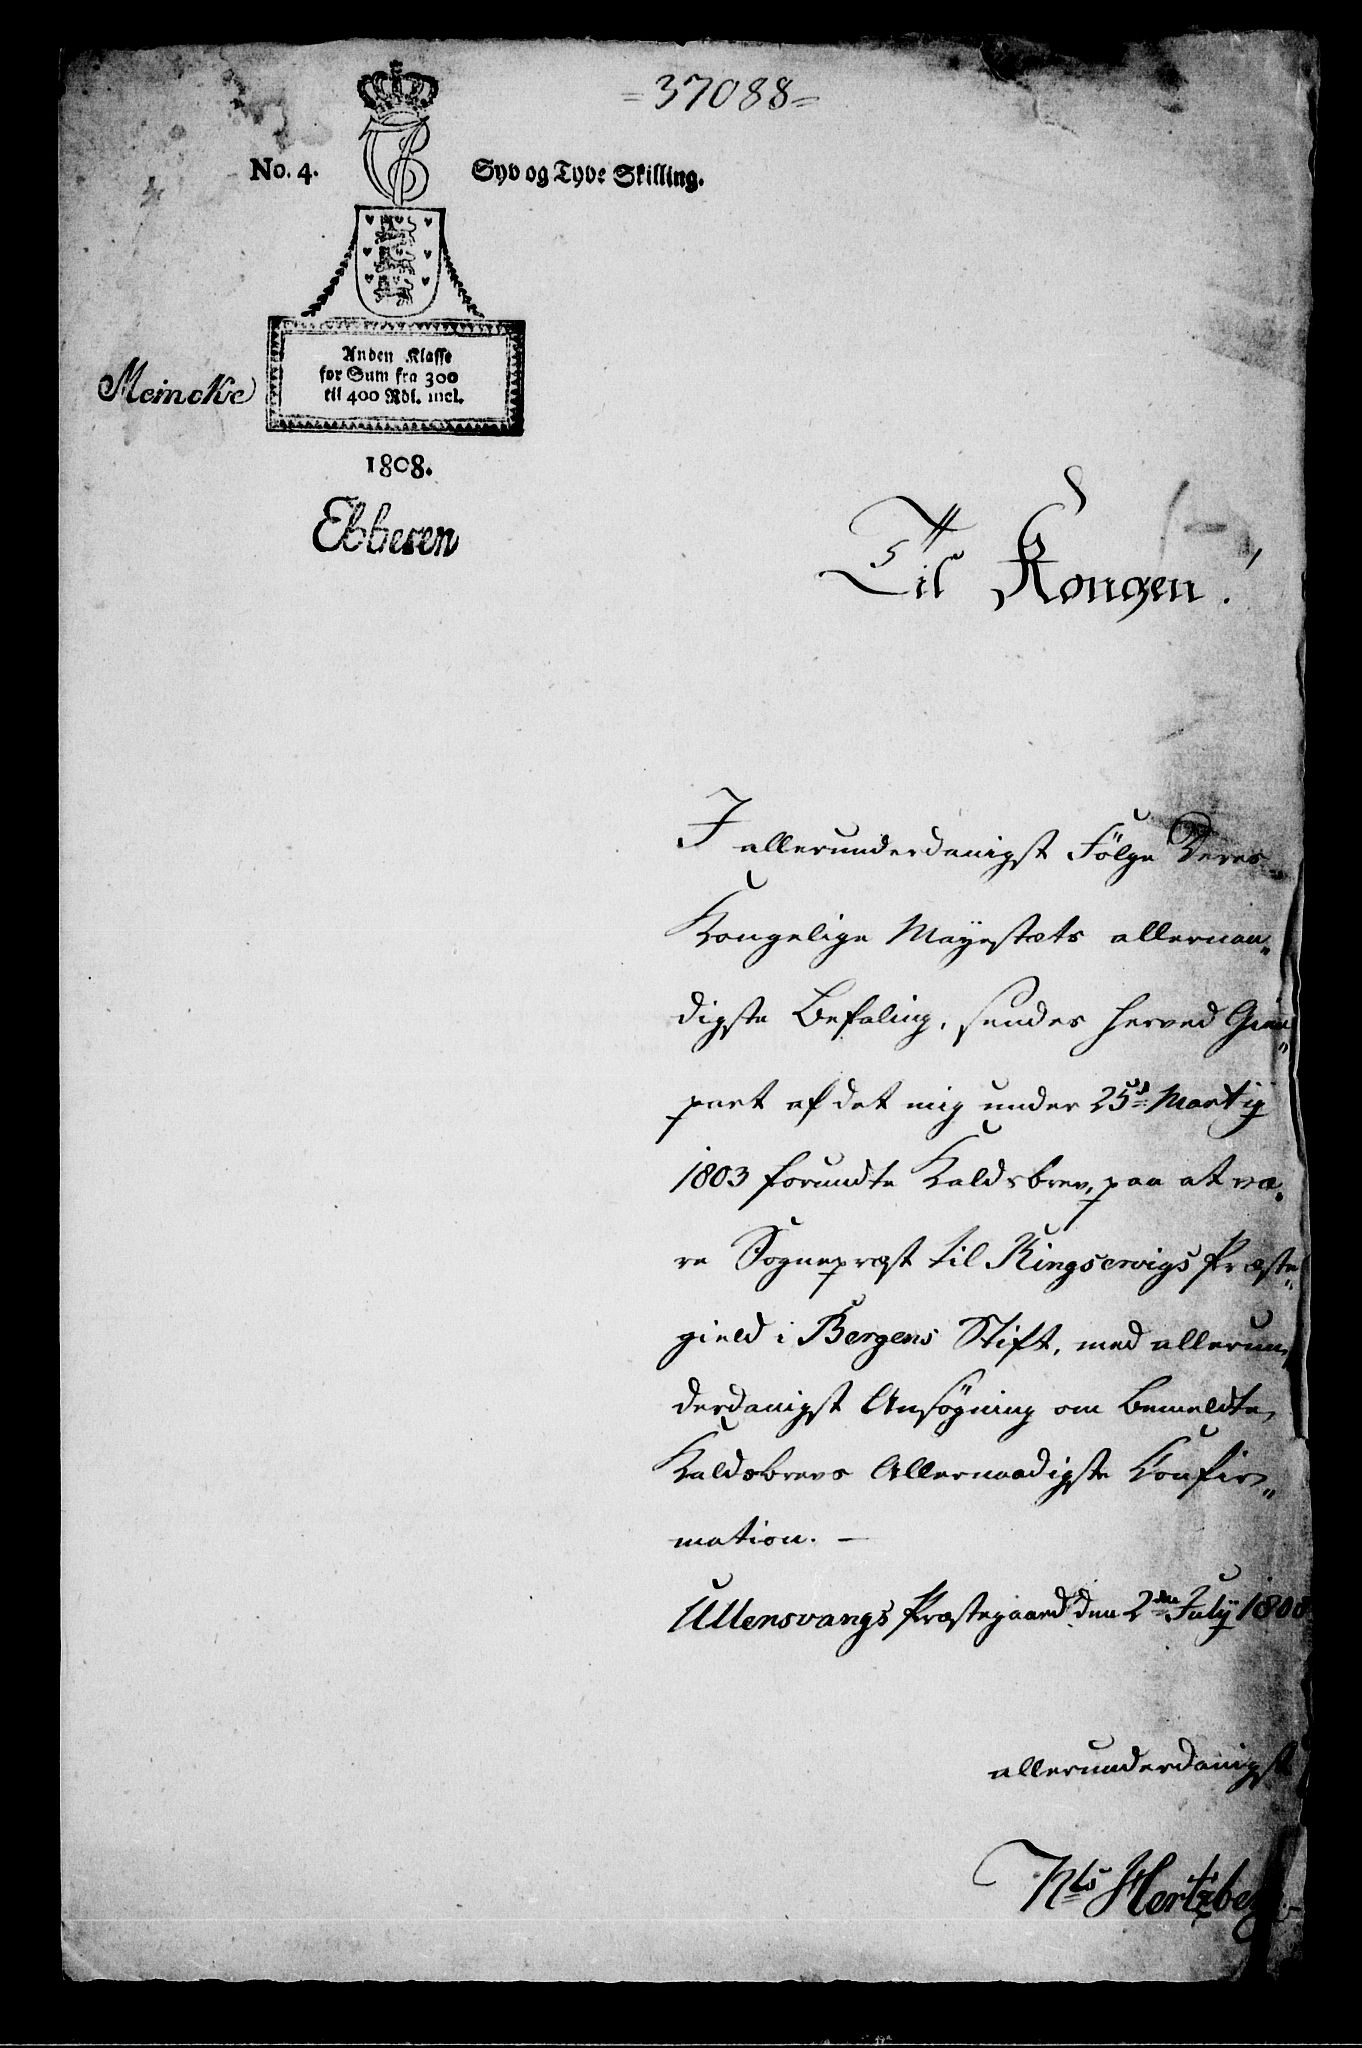 =37088=
No. 4.
Syv og Tyve Skilling.
Anden Klasse
for Sum fra 300
til 400 Rdl. incl.
Meincke
1808.
Ebbesen
Til Kongen!
I allerunderdanigst Fölge Deres
Kongelige Mayestæts allernaa„
digste Befaling, sendes herved Gien„
part af det mig under 25d Martij
1803 forundte Kaldsbrev, paa at væ„
re Sognepræst til Kingservigs Præste„
gield i Bergens Stift, med allerun„
derdanigst Ansögning om bemeldte
Kaldsbrevs Allernaadigste Confir„
mation. —
Ullensvangs Præstegaard den 2den Julij 1808
allerunderdanigst
Nls Hertzberg